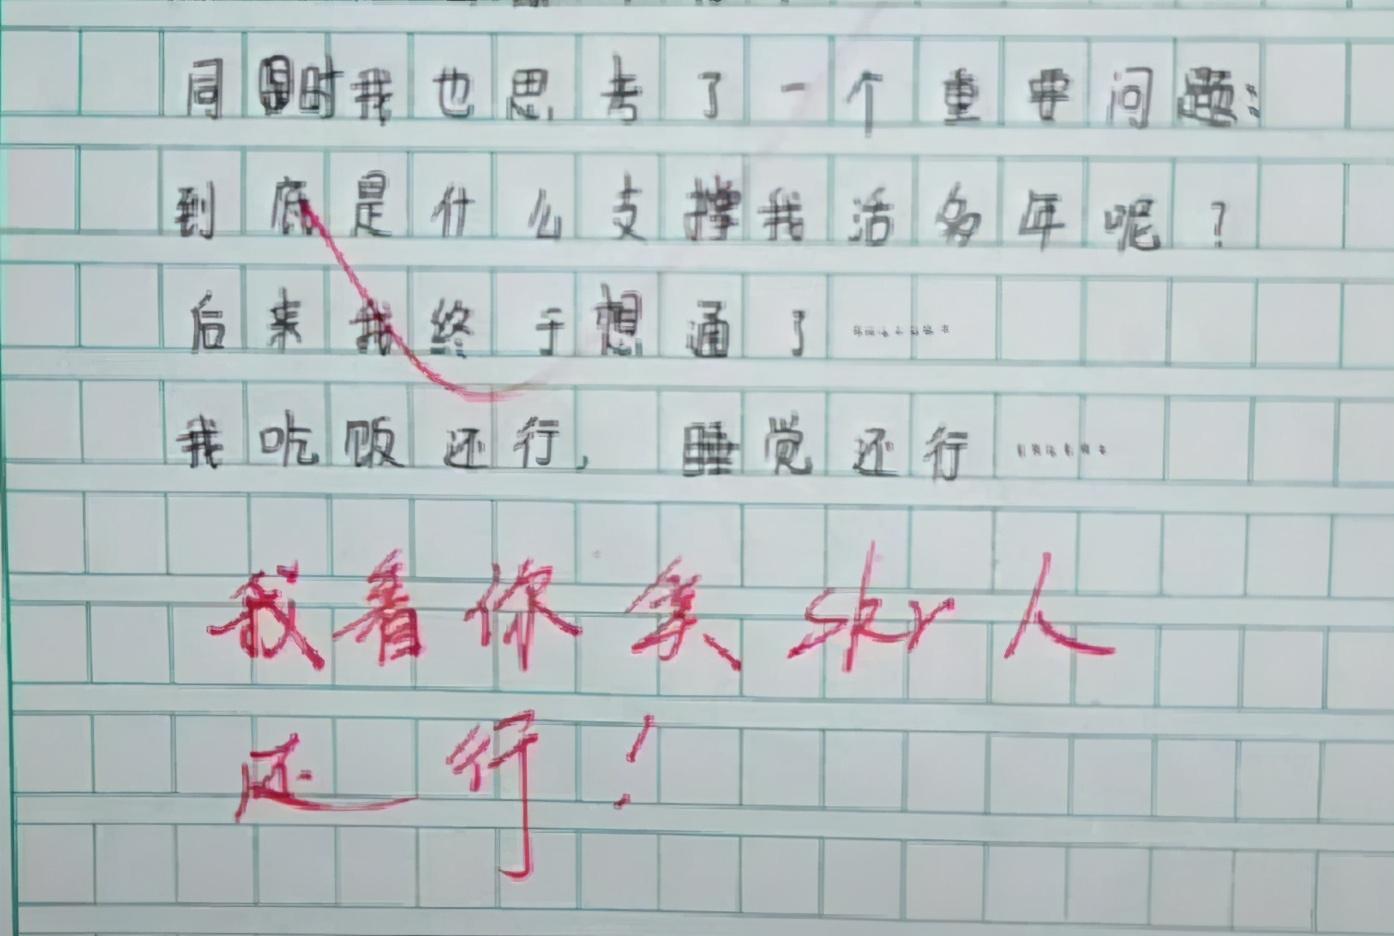 同时我也思考了一个重要问题:
到底是什么支撑我活多年呢?
后来我终于想通了……
我吃饭还行,睡觉还行……
我看你笑skr人
还行!